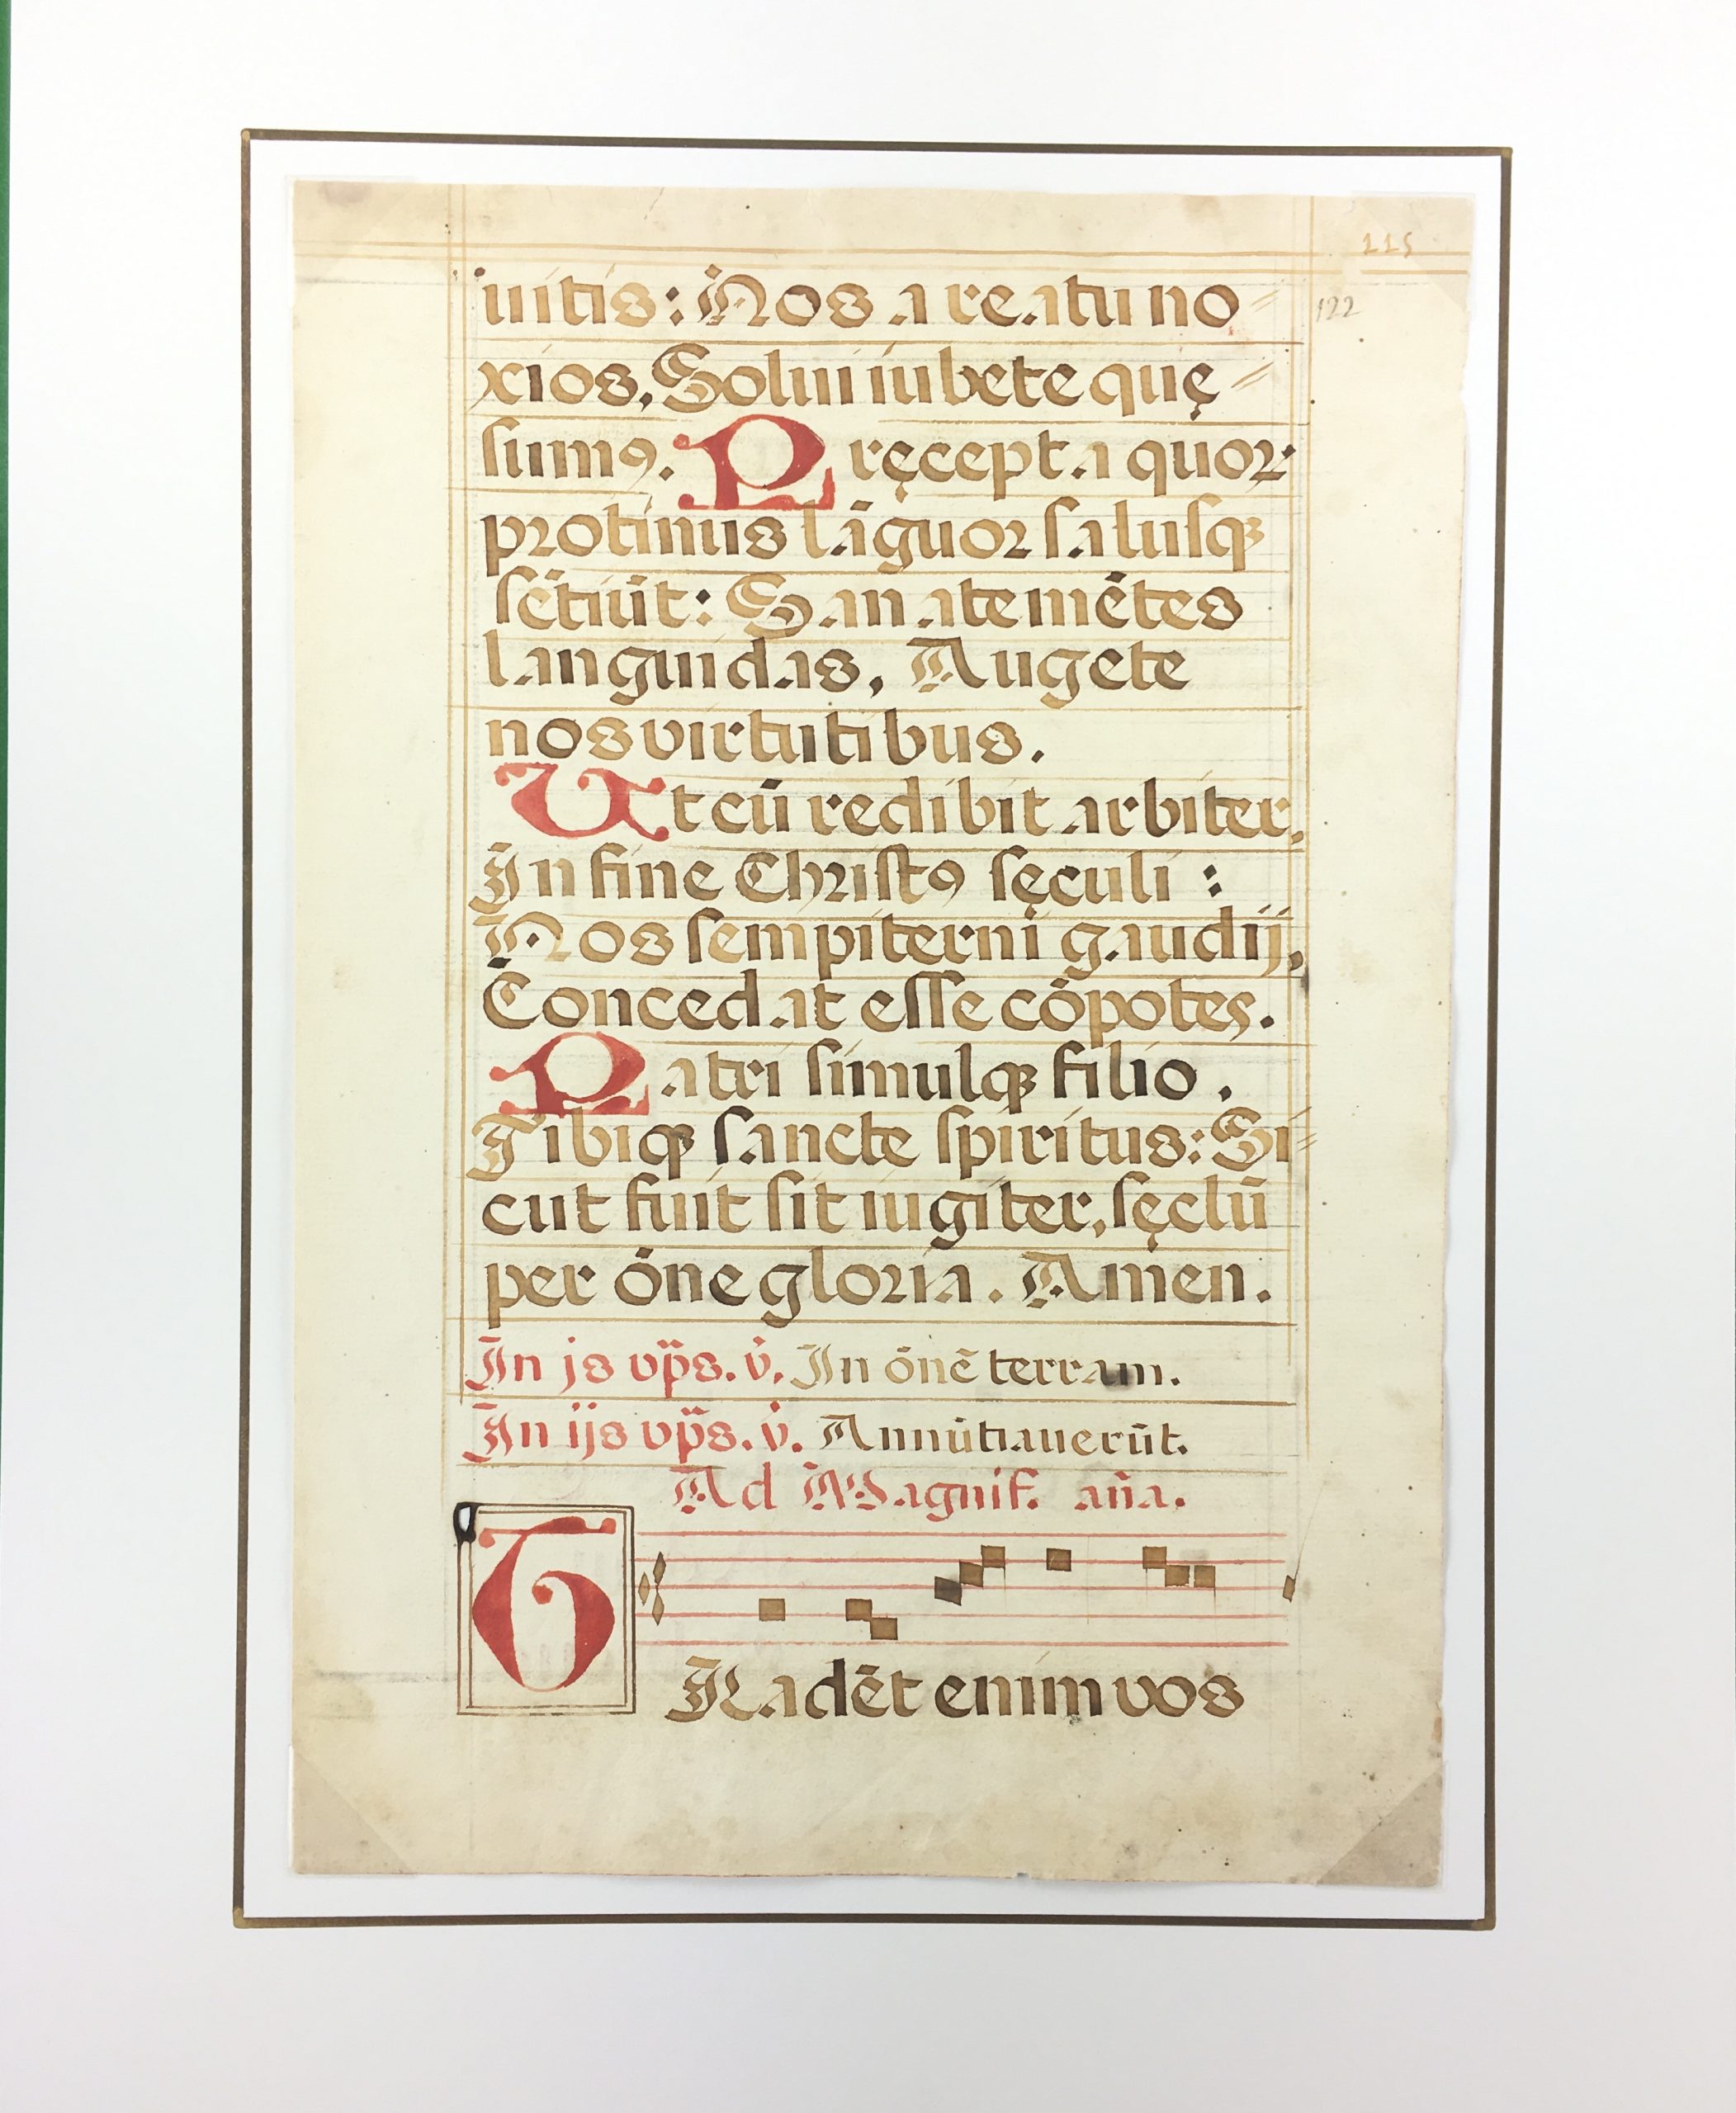 115
iuitis: Nos a reatu no=
122
xios, Solui iubete quę=
sumꝰ. Pręcepta quoꝝ
protinus lāguor salusqꝫ
sētiūt: Sanate mētes
languidas, Augete
nos virtutibus.
Ut cū redibit arbiter,
In fine Christꝰ sęculi:
Nos sempiterni gaudij,
Concedat esse cōpotes.
Patri simulqꝫ filio.
Tibiqꝫ sancte spiritus: Si=
cut fuit sit iugiter, sęclū
per ōne gloria. Amen.
In js vp̄s. v̇. In ōnē terram.
In ijs vp̄s. v̇. Annūtiauerūt.
Ad Magnif. an̄a.
TRadēt enim vos